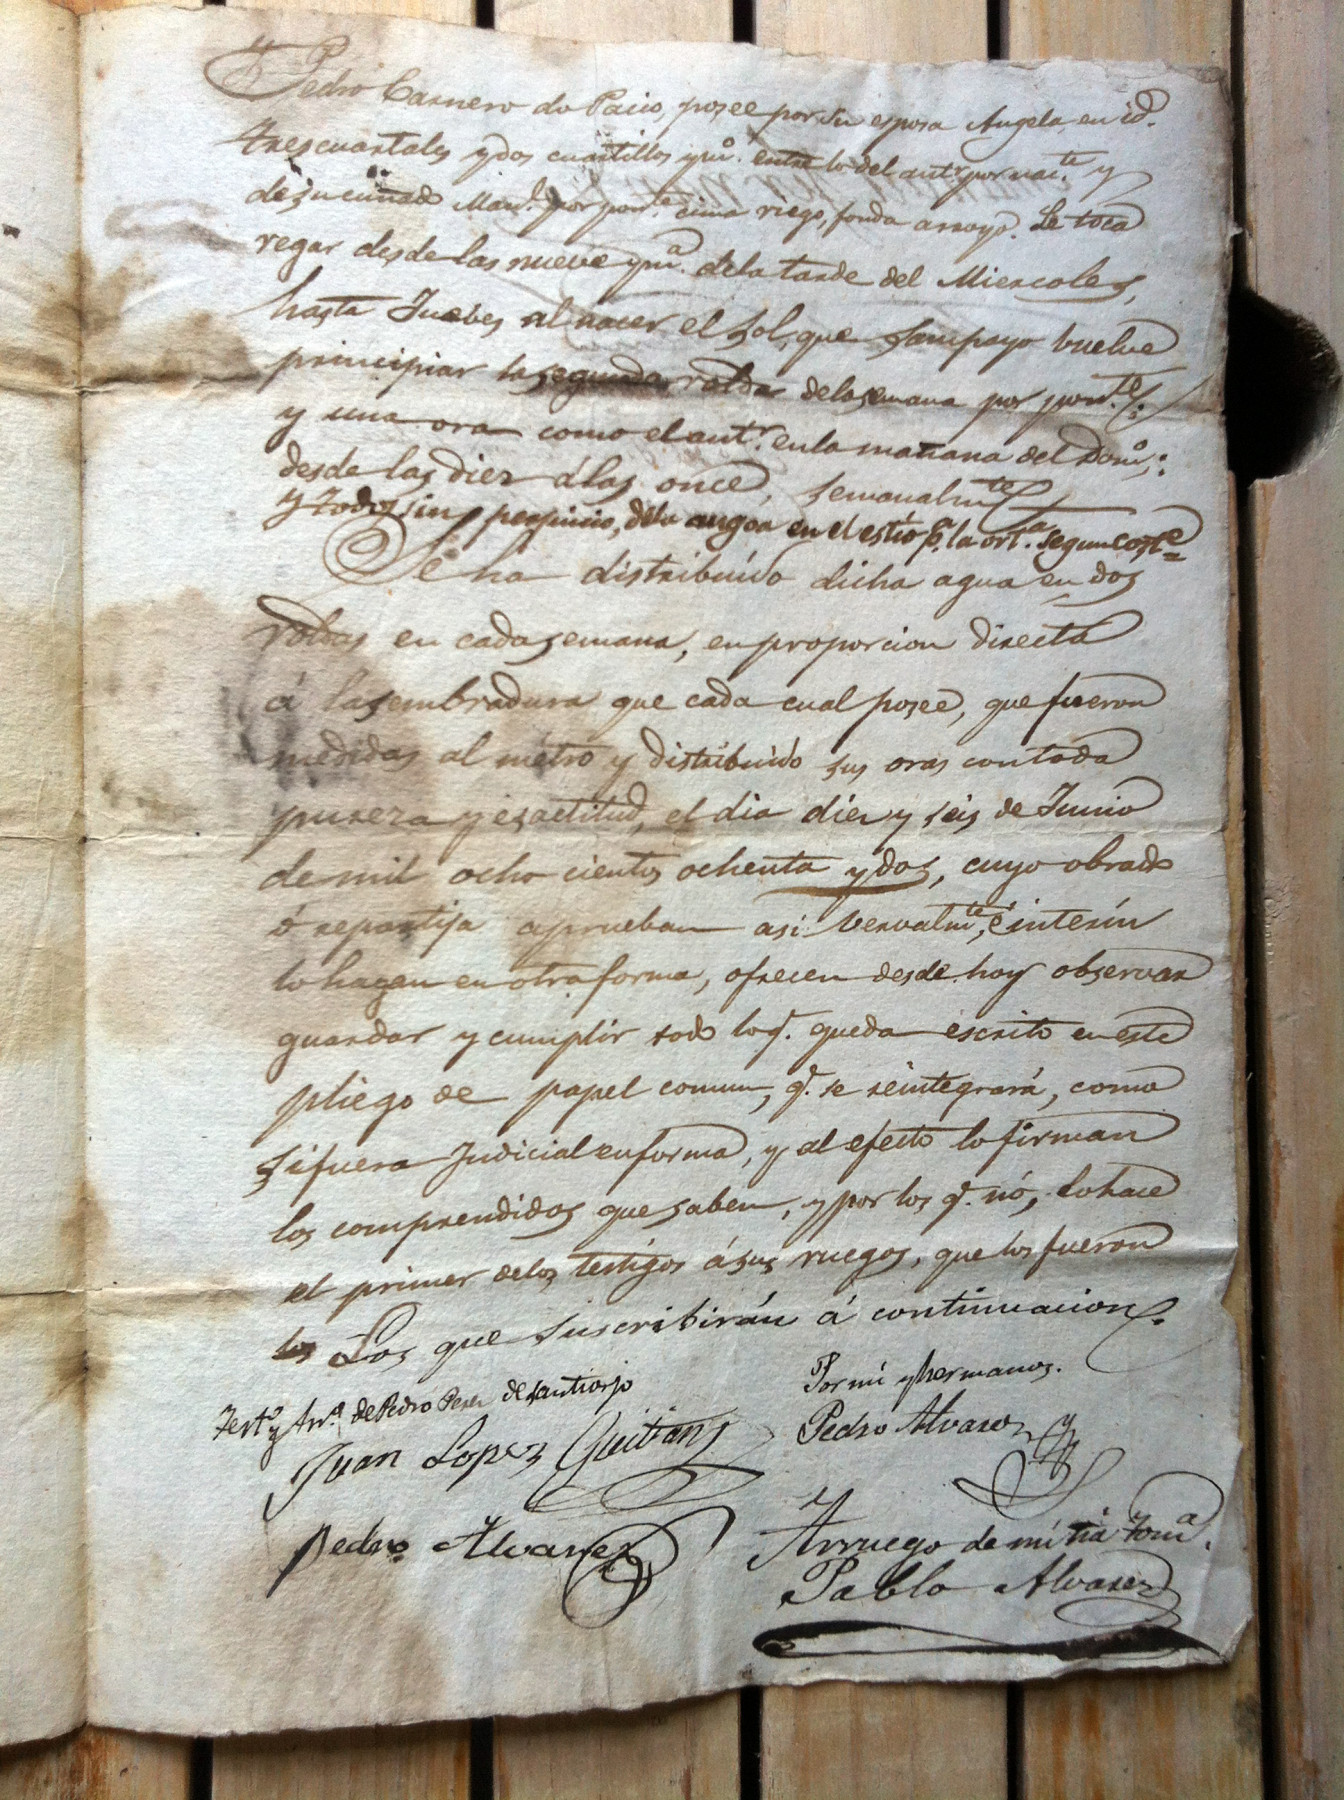 Pedro Carnero do Pacio, posee por su esposa Angela, en id.
tres cuartales y dos cuartillos y mº. entre lo del antr. por nac.te y
de su cuñado Man.l por pon.e cima riego, fonda arroyo. Le toca
regar desde las nueve y m.a de la tarde del Miercoles,
hasta Juebes al nacer el sol, que Sampayo buelve
principiar la segunda roldas de la semana por pon.te;
y una ora como el antr. en la mañana del Domº.;
desde las diez á las once, semanalm.te
y todos sin perjuicio, de la augoa en el estio p.a la ort.a segun cost.e
Se ha distribuido dicha agua en dos
roldas en cada semana, en proporcion directa
á la sembradura que cada cual posee, que fueron
medidas al metro y distribuido sus oras con toda
pureza y esactitud, el dia diez y seis de Junio
de mil ocho cientos ochenta y dos, cuyo obrado
ó repartija aprueban asi vervalm.te, é interin
lo hagen en otra forma, ofrecen desde hoy observar
guardar y cumplir todo lo q. queda escrito en este
pliego de papel comun, q. se reintegrará, como
si fuera Judicial en forma, y al efecto lo firman
los comprendidos que saben, y por los q. nó, lo hace
el primer de los testigos á sus ruegos, que los fueron
los Los que suscribirán á continuacion.
Testº y Arr.º de Pedro Perez de Santiorjo
Juan Lopez Quitans
Por mi y hermanos.
Pedro Alvarez
Pedro Alvarez
Arruego de mi tia Tom.a.
Pablo Alvarez